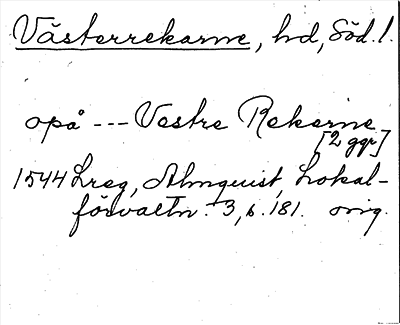 Västerrekarne, hd, Söd. l.
opå --- Vestre Rekarne
[2 ggr]
1544 Lreg, Almquist, Lokal-
förvaltn. 3, s. 181. orig.